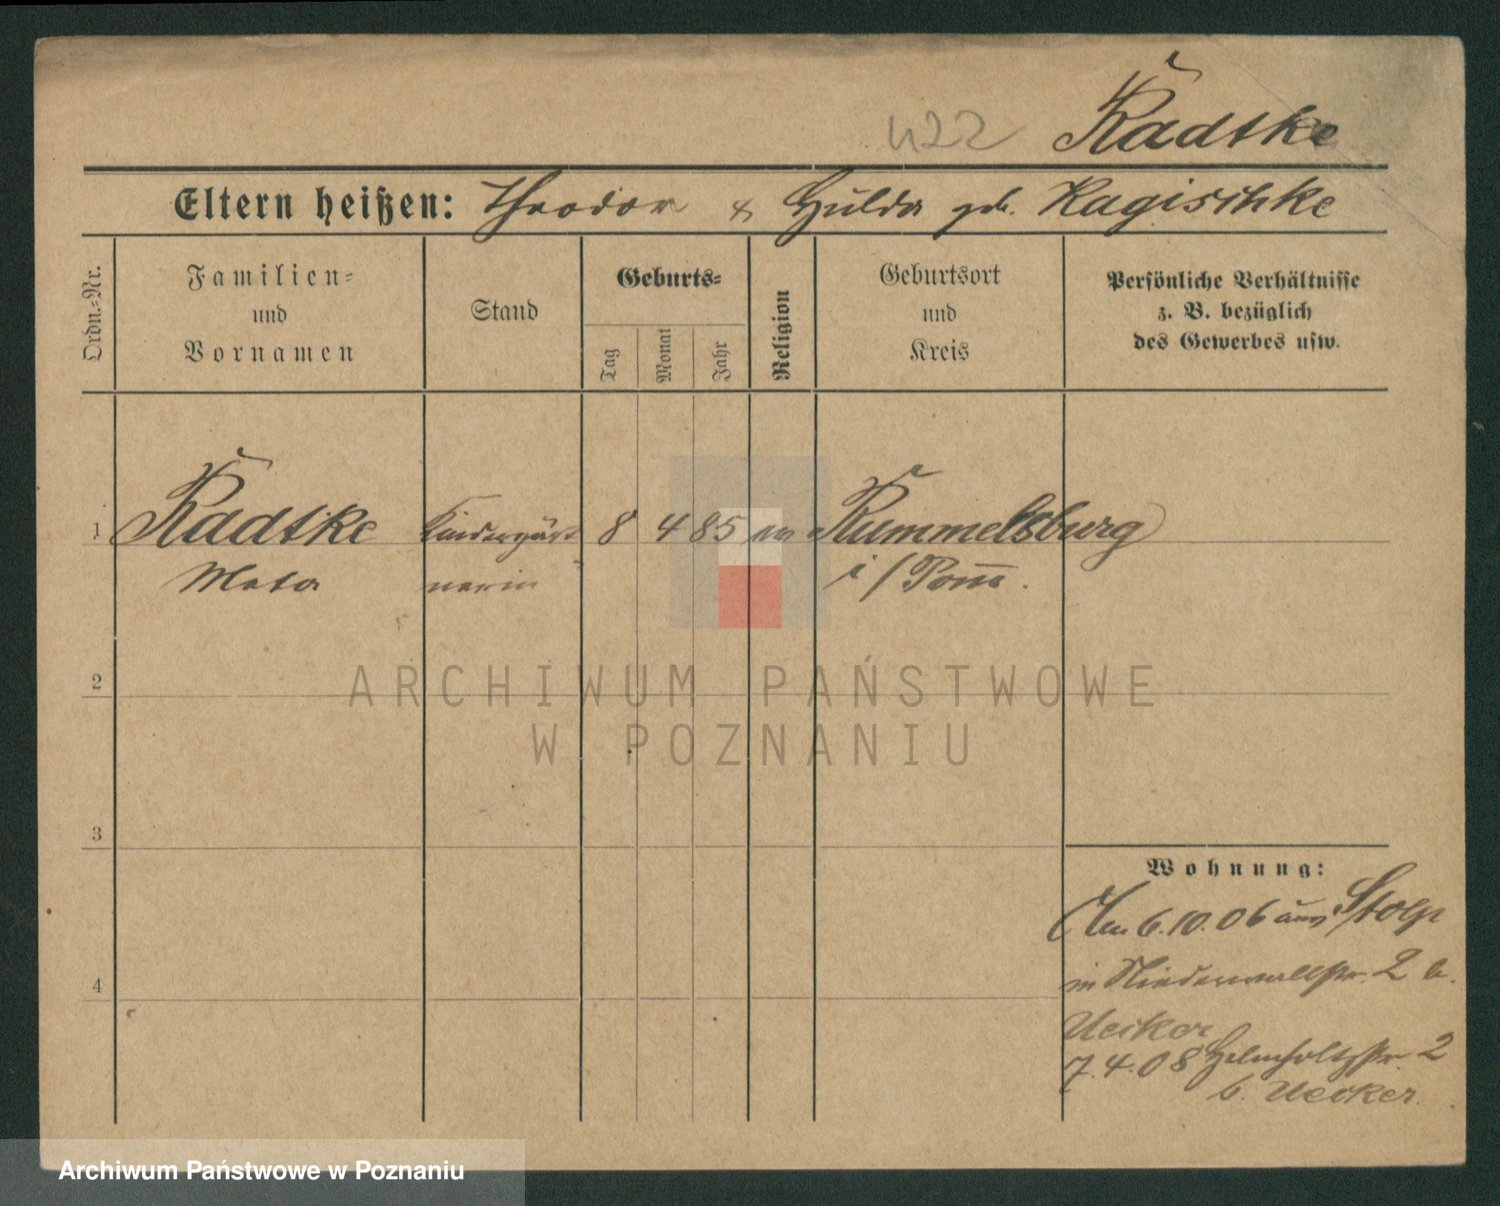 422 Radtke
Eltern heißen: Theodor & Hulda geb. Ragischke
Ordn.-Nr.
Familien-
und
Vornamen
Stand
Geburts-
Tag
Monat
Jahr
Religion
Geburtsort
und
Kreis
Persönliche Verhältnisse
z. B. bezüglich
des Gewerbes usw.
1 Radtke Kindergärt 8 4 85 ev Rummelsburg
Meta nerin i/Pom.
2
ARCHIWUM PAŃSTWOWE
W POZNANIU
3
Wohnung:
Am 6.10.06 aus Stolp
in Niederwallstr. 2 b.
4
Uecker
7.4.08 Helmholtzstr. 2
b. Uecker.
Archiwum Państwowe w Poznaniu